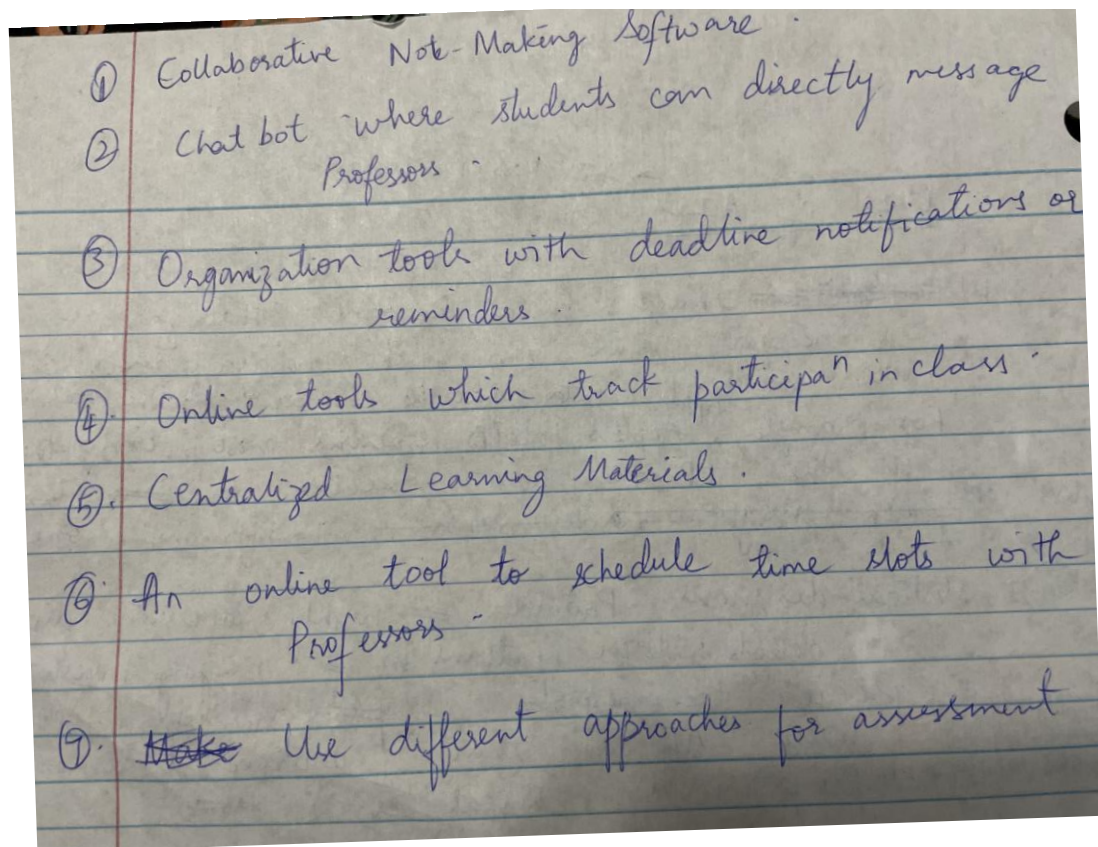 ① Collaborative Note-Making Software.
② Chat bot where students can directly message
Professors.
③ Organization tools with deadline notifications or
reminders.
④. Online tools which track participaⁿ in class.
⑤. Centralized Learning Materials.
⑥. An online tool to schedule time slots with
Professors.
⑦. Make Use different approaches for assessment